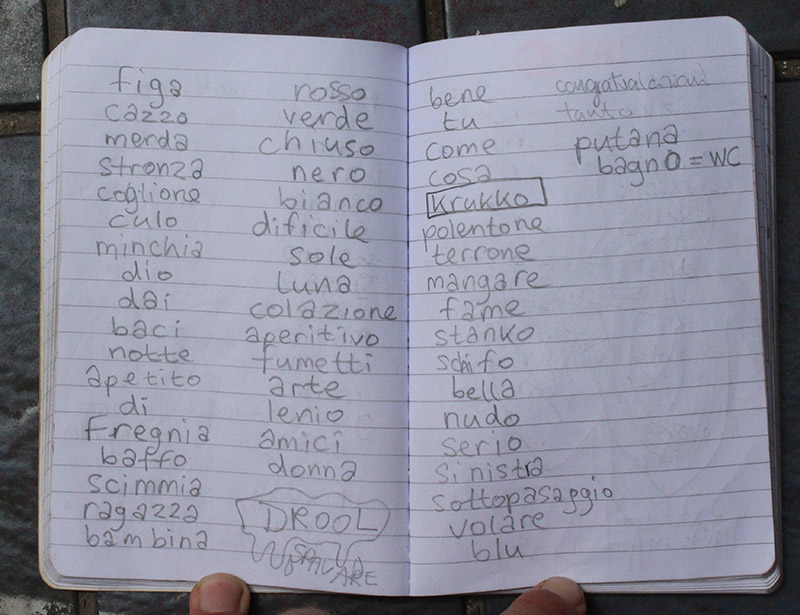 figa
cazzo
merda
stronza
coglione
culo
minchia
dio
dai
baci
notte
apetito
di
fregnia
baffo
scimmia
ragazza
bambina
rosso
verde
chiuso
nero
bianco
dificile
sole
luna
colazione
aperitivo
fumetti
arte
lenio
amici
donna
DROOL
bene
tu
come
cosa
krukko
polentone
terrone
mangare
fame
stanko
schifo
bella
nudo
serio
sinistra
sottopasaggio
volare
blu
tanto
putana
bagno = WC